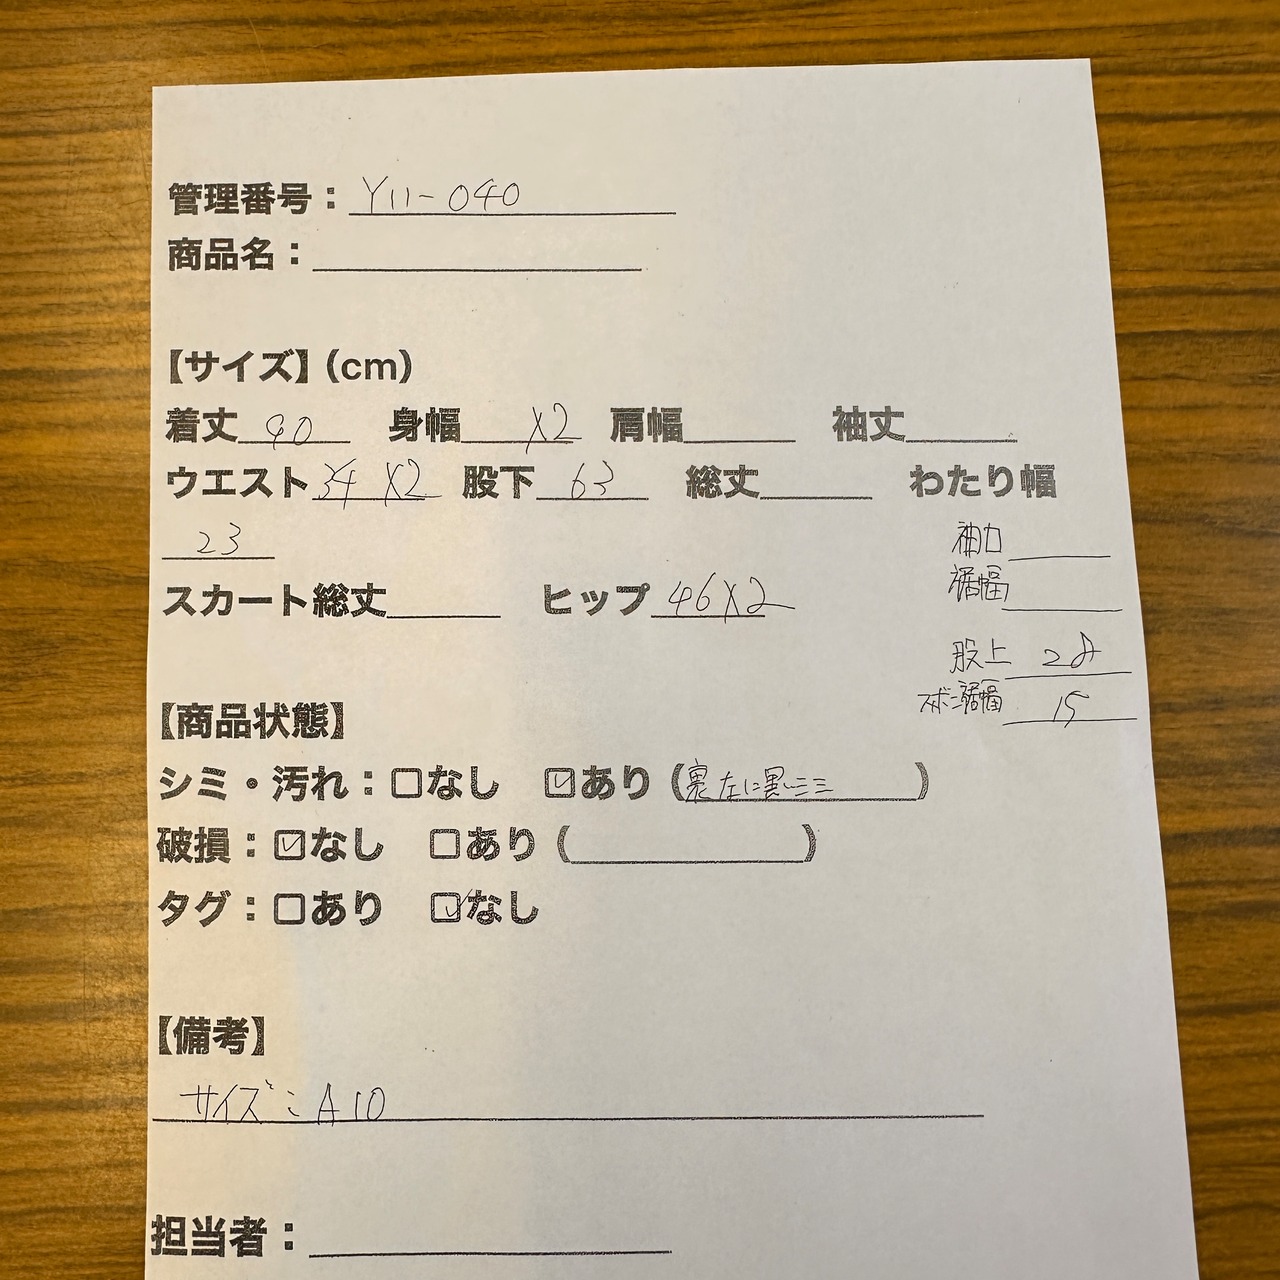 管理番号：Y11-040
商品名：
【サイズ】(cm)
着丈 90 身幅 X2 肩幅 袖丈
ウエスト 34 X2 股下 63 総丈 わたり幅
23
袖力
裾幅
スカート総丈 ヒップ 46X2
股上 28
ズボン裾幅 15
【商品状態】
シミ・汚れ：□なし ☑あり（裏左に黒いシミ）
破損：☑なし □あり（ ）
タグ：□あり ☑なし
【備考】
サイズ：A10
担当者：